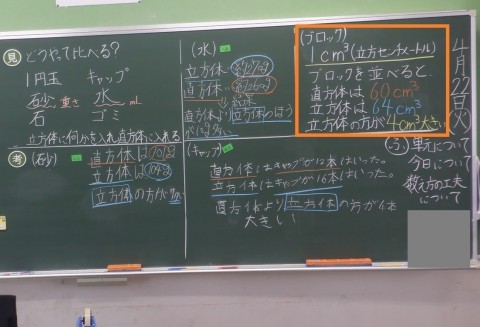 見 どうやって比べる?
1円玉 キャップ
砂 重さ 水 mL
石 ゴミ
立方体に何かを入れ直方体に入れる
考 (砂)
直方体は
立方体は
立方体の方が
(水)
立方体
直方体
(キャップ)
直方体はキャップが12本はいった。
立方体はキャップが16本はいった。
直方体より立方体の方が4本
大きい
(ブロック)
1cm³(立方センチメートル)
ブロックを並べると、
直方体は60cm³
立方体は64cm³
立方体の方が4cm³大きい
4月22日(火)
(ふ)単元について
今日について
数え方の工夫
について